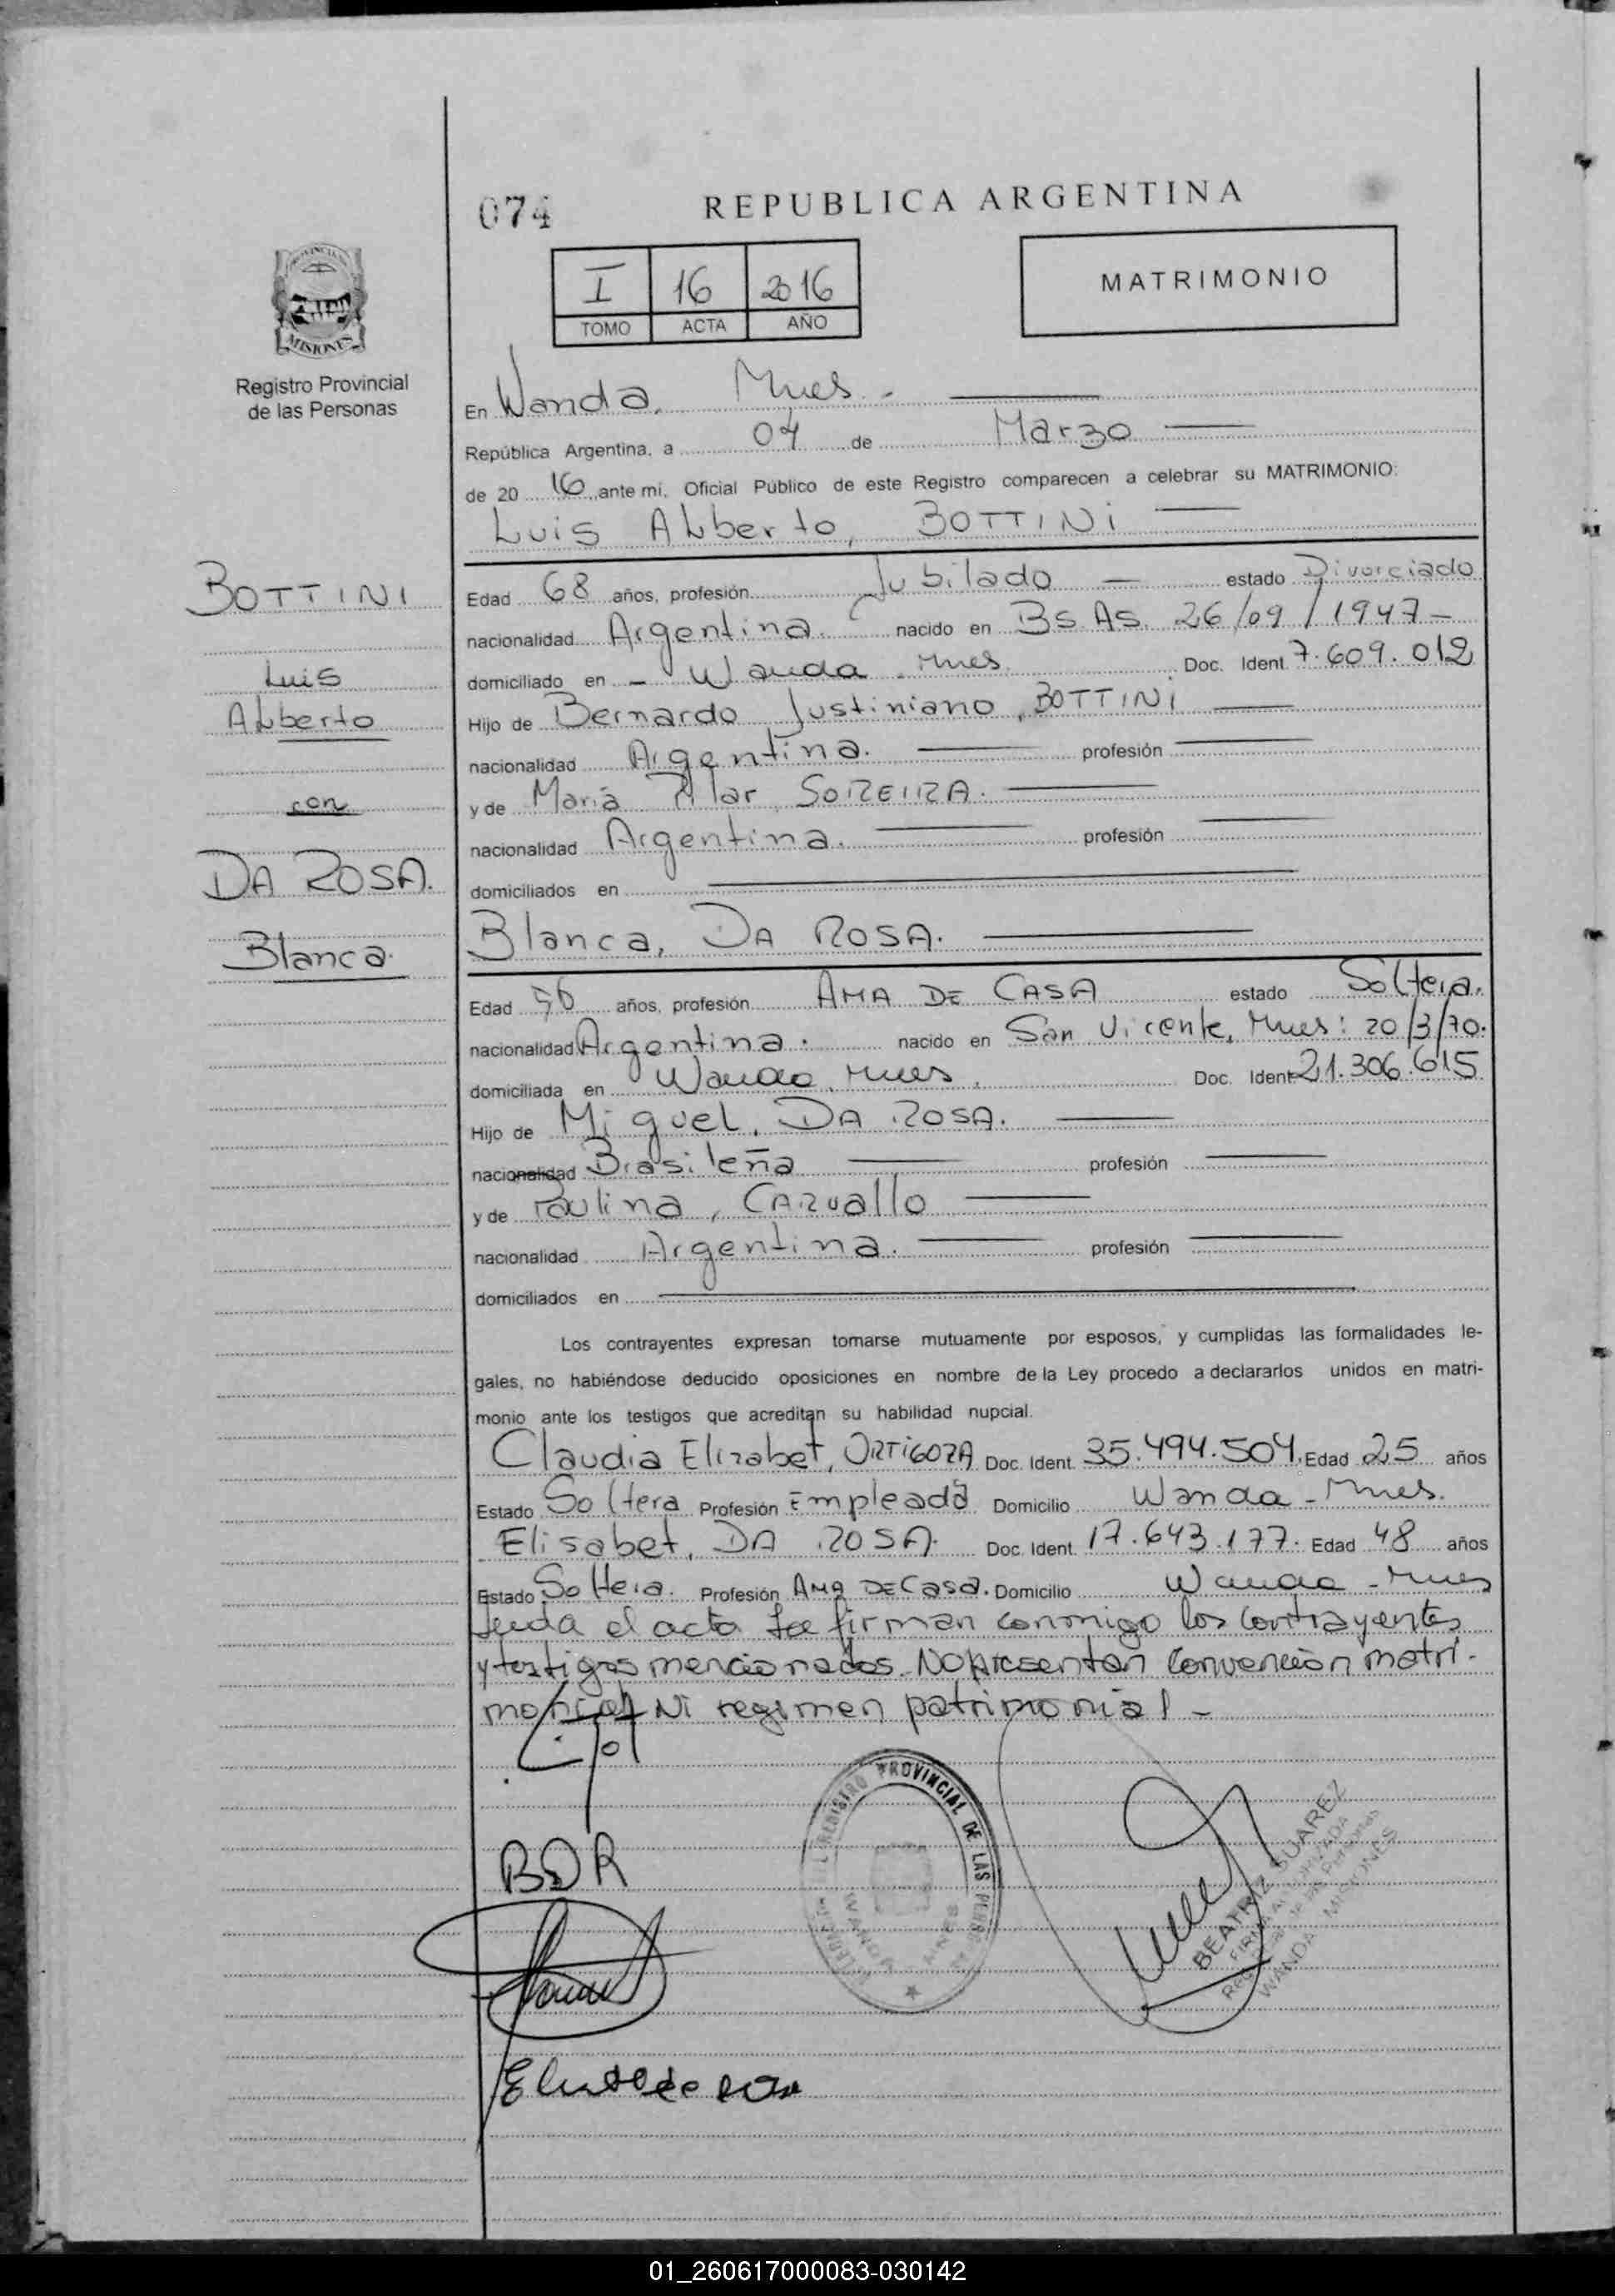 074
REPUBLICA ARGENTINA
PROVINCIA DE
MISIONES
Registro Provincial
de las Personas
I 16 2016
TOMO ACTA AÑO
MATRIMONIO
En Wanda, Mnes.-
República Argentina, a 04 de Marzo
de 20 16 ante mi, Oficial Público de este Registro comparecen a celebrar su MATRIMONIO:
Luis Alberto, BOTTINI
BOTTINI
Luis
Alberto
con
DA ROSA.
Blanca.
Edad 68 años, profesión Jubilado estado Divorciado
nacionalidad Argentina. nacido en Bs As. 26/09/1947-
domiciliado en - Wanda - Mnes. Doc. Ident. 7.609.012
Hijo de Bernardo Justiniano, BOTTINI
nacionalidad Argentina. profesión
y de María Pilar SOREIRA.
nacionalidad Argentina. profesión
domiciliados en
Blanca, DA ROSA.
Edad años, profesión AMA DE CASA estado Soltera.
nacionalidad Argentina. nacido en San Vicente, Mnes: 20/3/70.
domiciliada en Wanda, Mnes. Doc. Ident. 21.306.615
Hijo de Miguel, DA ROSA.
nacionalidad Brasileña profesión
y de Paulina, CARVallo
nacionalidad Argentina. profesión
domiciliados en
Los contrayentes expresan tomarse mutuamente por esposos, y cumplidas las formalidades le-
gales, no habiéndose deducido oposiciones en nombre de la Ley procedo a declararlos unidos en matri-
monio ante los testigos que acreditan su habilidad nupcial.
Claudia Elizabet, ORTIGOZA Doc. Ident. 35.494.504. Edad 25 años
Estado Soltera Profesión Empleada Domicilio Wanda - Mnes.
Elisabet, DA ROSA. Doc. Ident. 17.643.177. Edad 48 años
Estado Soltera. Profesión AMA DE Casa. Domicilio Wanda - Mnes
Leida el acta la firman conmigo los contrayentes
y testigos mencionados. No presentan convención matri-
monial Ni regimen patrimonial -
BDR
REGISTRO PROVINCIAL DE LAS PERSONAS
WANDA MNES
BEATRIZ SUAREZ
FIRMA AUTORIZADA
WANDA MISIONES
01_260617000083-030142